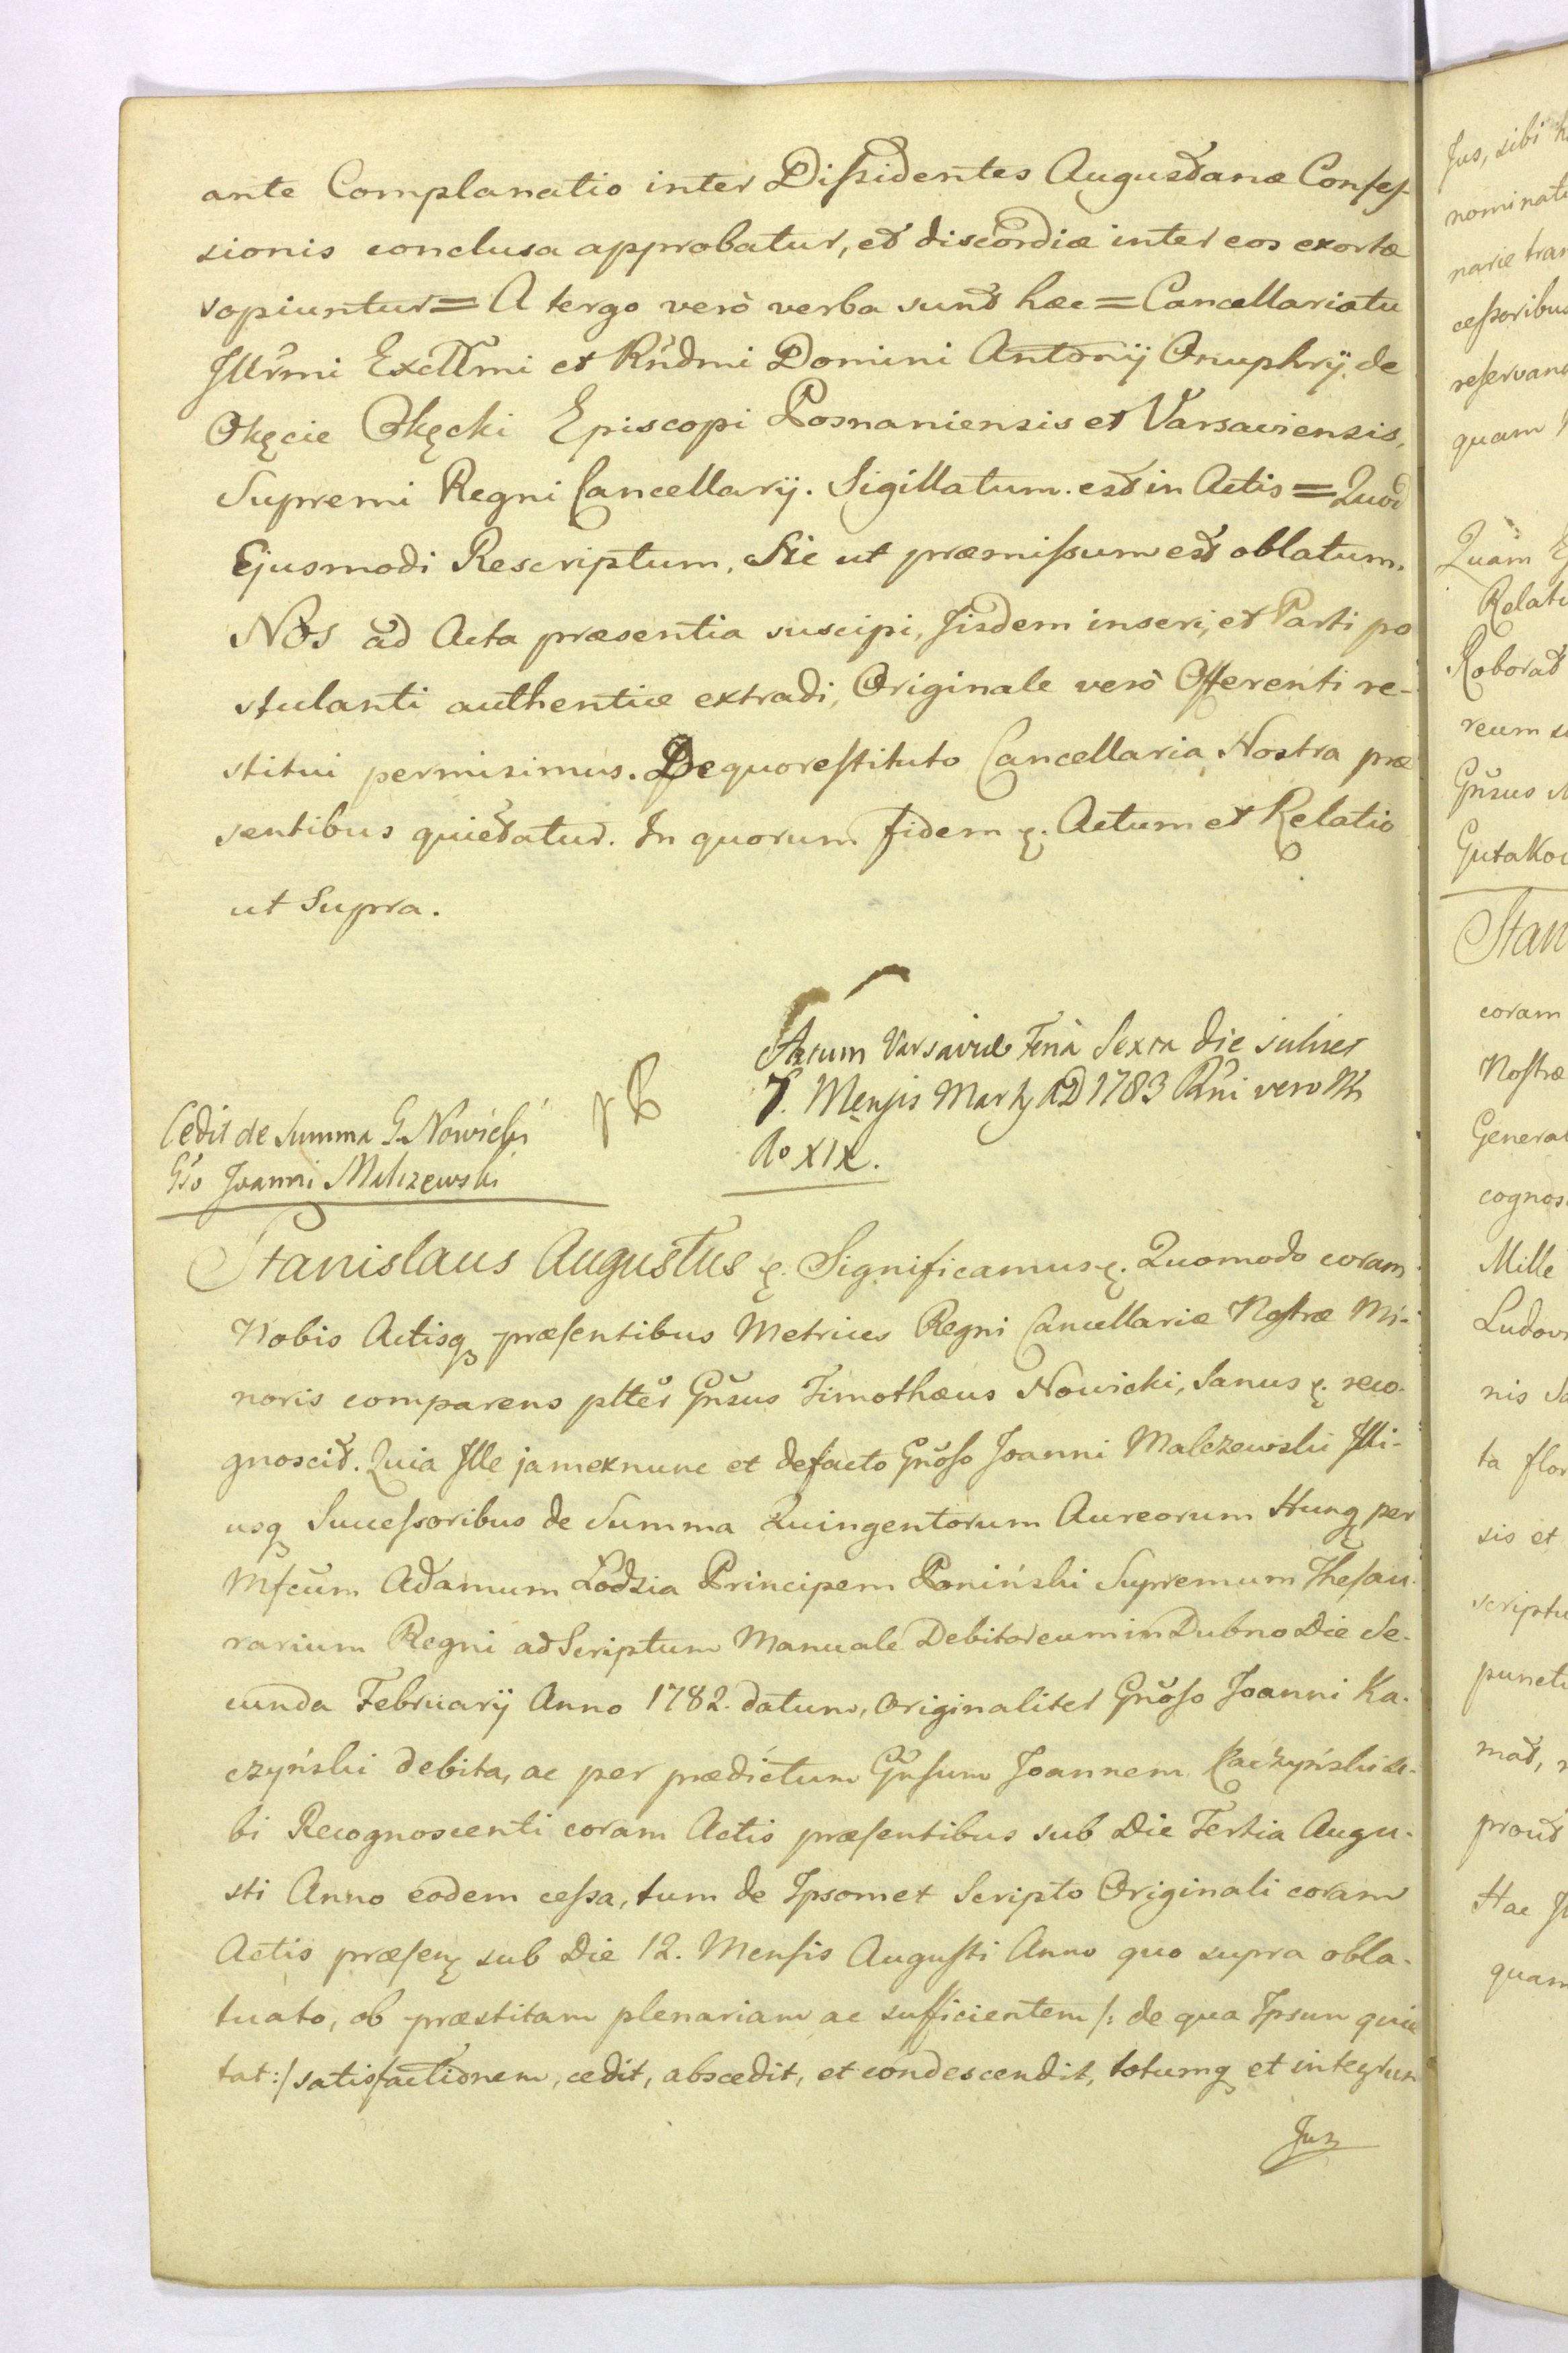 ante Complanatio inter Dissidentes Augustanæ Confes-
sionis conclusa approbatur, et discordiæ inter eos exortæ
sopiuntur = A tergo verò verba sunt hæc = Cancellariatu
Illrmi Excllmi et Rndmi Domini Antonij Onuphrij de
Okęcie Okęcki Episcopi Posnaniensis et Varsaviensis,
Supremi Regni Cancellarij. Sigillatum est in Actis = Quod
Ejusmodi Rescriptum, Sic ut præmissum est oblatum.
Nos ad Acta præsentia suscipi, Iisdem inseri, et Parti po
stulanti authentice extradi, Originale verò Offerenti re-
stitui permisimus. De quo restituto Cancellaria Nostra præ
sentibus quietatur. In quorum fidem &. Actum et Relatio
ut Supra.
Actum Varsaviæ Feria Sexta die
7. Mensis Martij AD 1783 Rni vero Nri
Ao XIX.
Cedit de Summa G. Nowicki
Gso Joanni Malczewski
Stanislaus Augustus &. Significamus &. Quomodo coram
Nobis Actisq præsentibus Metrices Regni Cancellariæ Nostræ Mi-
noris comparens plter Gnsus Timothæus Nowicki, Sanus &. reco-
gnoscit. Quia Ille jam ex nunc et de facto Gnoso Joanni Malczewski Illi-
usq Successoribus de Summa Quingentorum Aureorum Hung per
Mfcum Adamum Łodzia Principem Poniński Supremum Thesau-
rarium Regni ad Scriptum Manuale Debitoreum in Dubno Die Se-
cunda Februarij Anno 1782. datum, Originaliter Gnoso Joanni Ka-
czyński debita, ac per prædictum Gnsum Joannem Kaczyński si-
bi Recognoscenti coram Actis præsentibus sub Die Tertia Augu-
sti Anno eodem cessa, tum de Ipsomet Scripto Originali coram
Actis præsen sub Die 12. Mensis Augusti Anno quo supra obla-
tuato, ob præstitam plenariam ac sufficientem /: de qua Ipsum quie
tat :/ satisfactionem, cedit, abscedit, et condescendit, totumq et integrum
Jus
Jus, sibi
nominat
narie tran
cessoribus
reservand
quam
Quam
Relati
Roborat
reum
Gnsus
Gutakow
Stan
coram
Nostræ
General
cognos
Mille
Ludov
nis
ta flor
sis et
scriptu
puncti
mat,
prout
Hac
quam